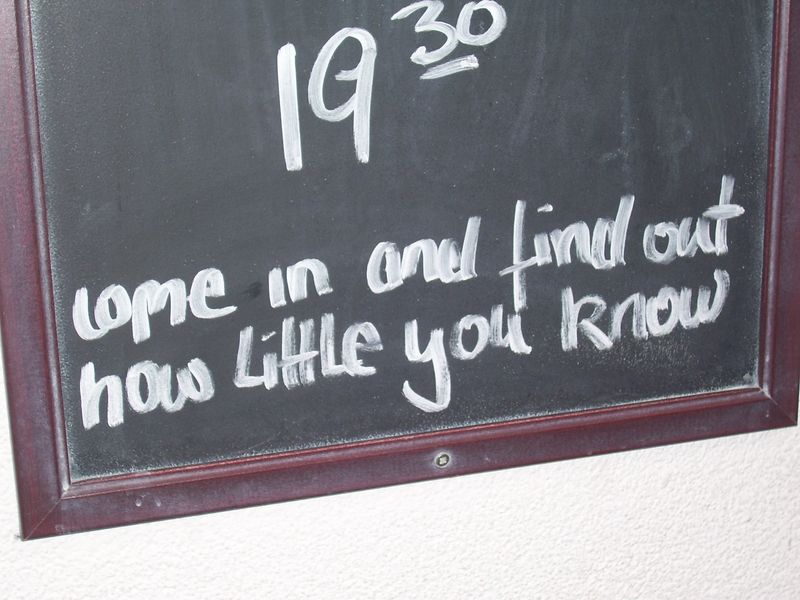 19 30
come in and find out
how little you know